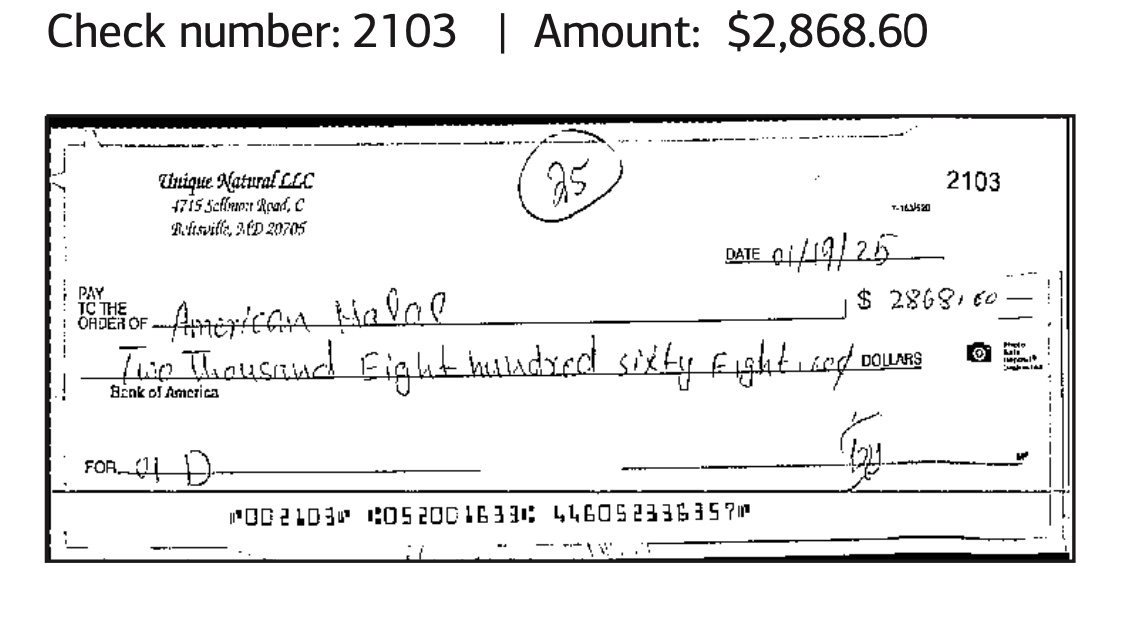 Check number: 2103 | Amount: $2,868.60
25
Unique Natural LLC
4715 Sellman Road, C
Beltsville, MD 20705
2103
DATE 01/19/25
PAY
TO THE
ORDER OF American Halal
$ 2868.60
Two Thousand Eight hundred sixty Eight
DOLLARS
Photo
Safe
Deposit®
Bank of America
FOR 01 D
MP
⑈002103⑈ ⑆052001633⑆ 446052336357⑈